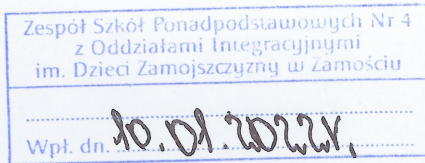 Zespół Szkół Ponadpodstawowych Nr 4
z Oddziałami Integracyjnymi
im. Dzieci Zamojszczyzny w Zamościu
Wpł. dn. 10.01.2022r.